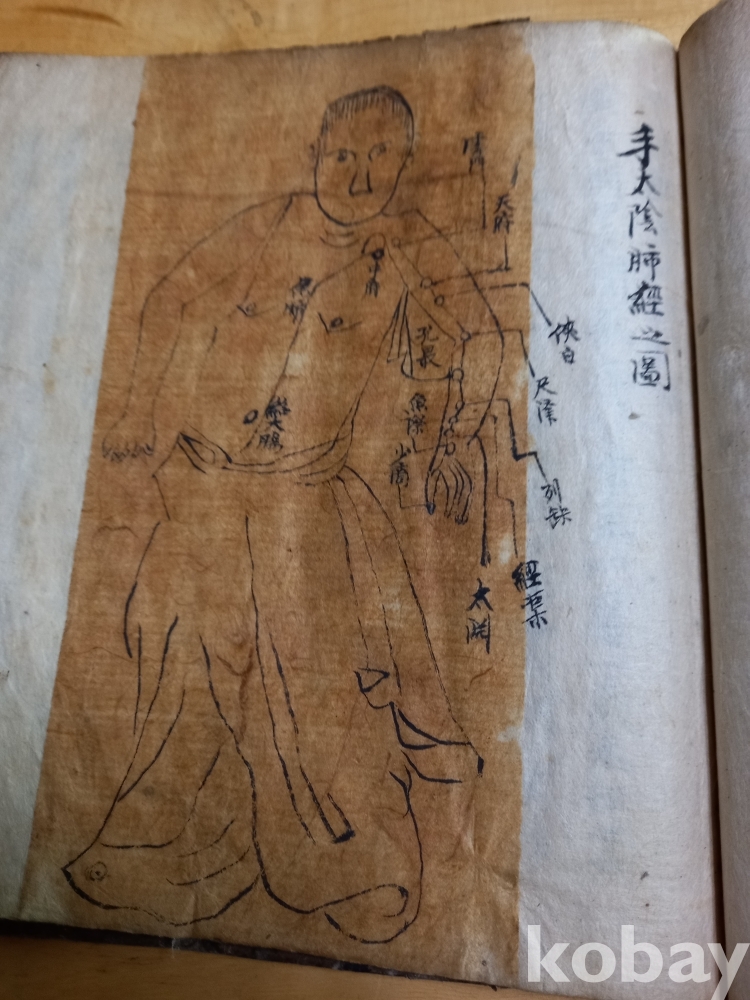 手太陰肺經之圖
天府
俠白
中府
孔最
尺澤
魚際
少商
列缺
絡大腸
太渊
經渠
kobay